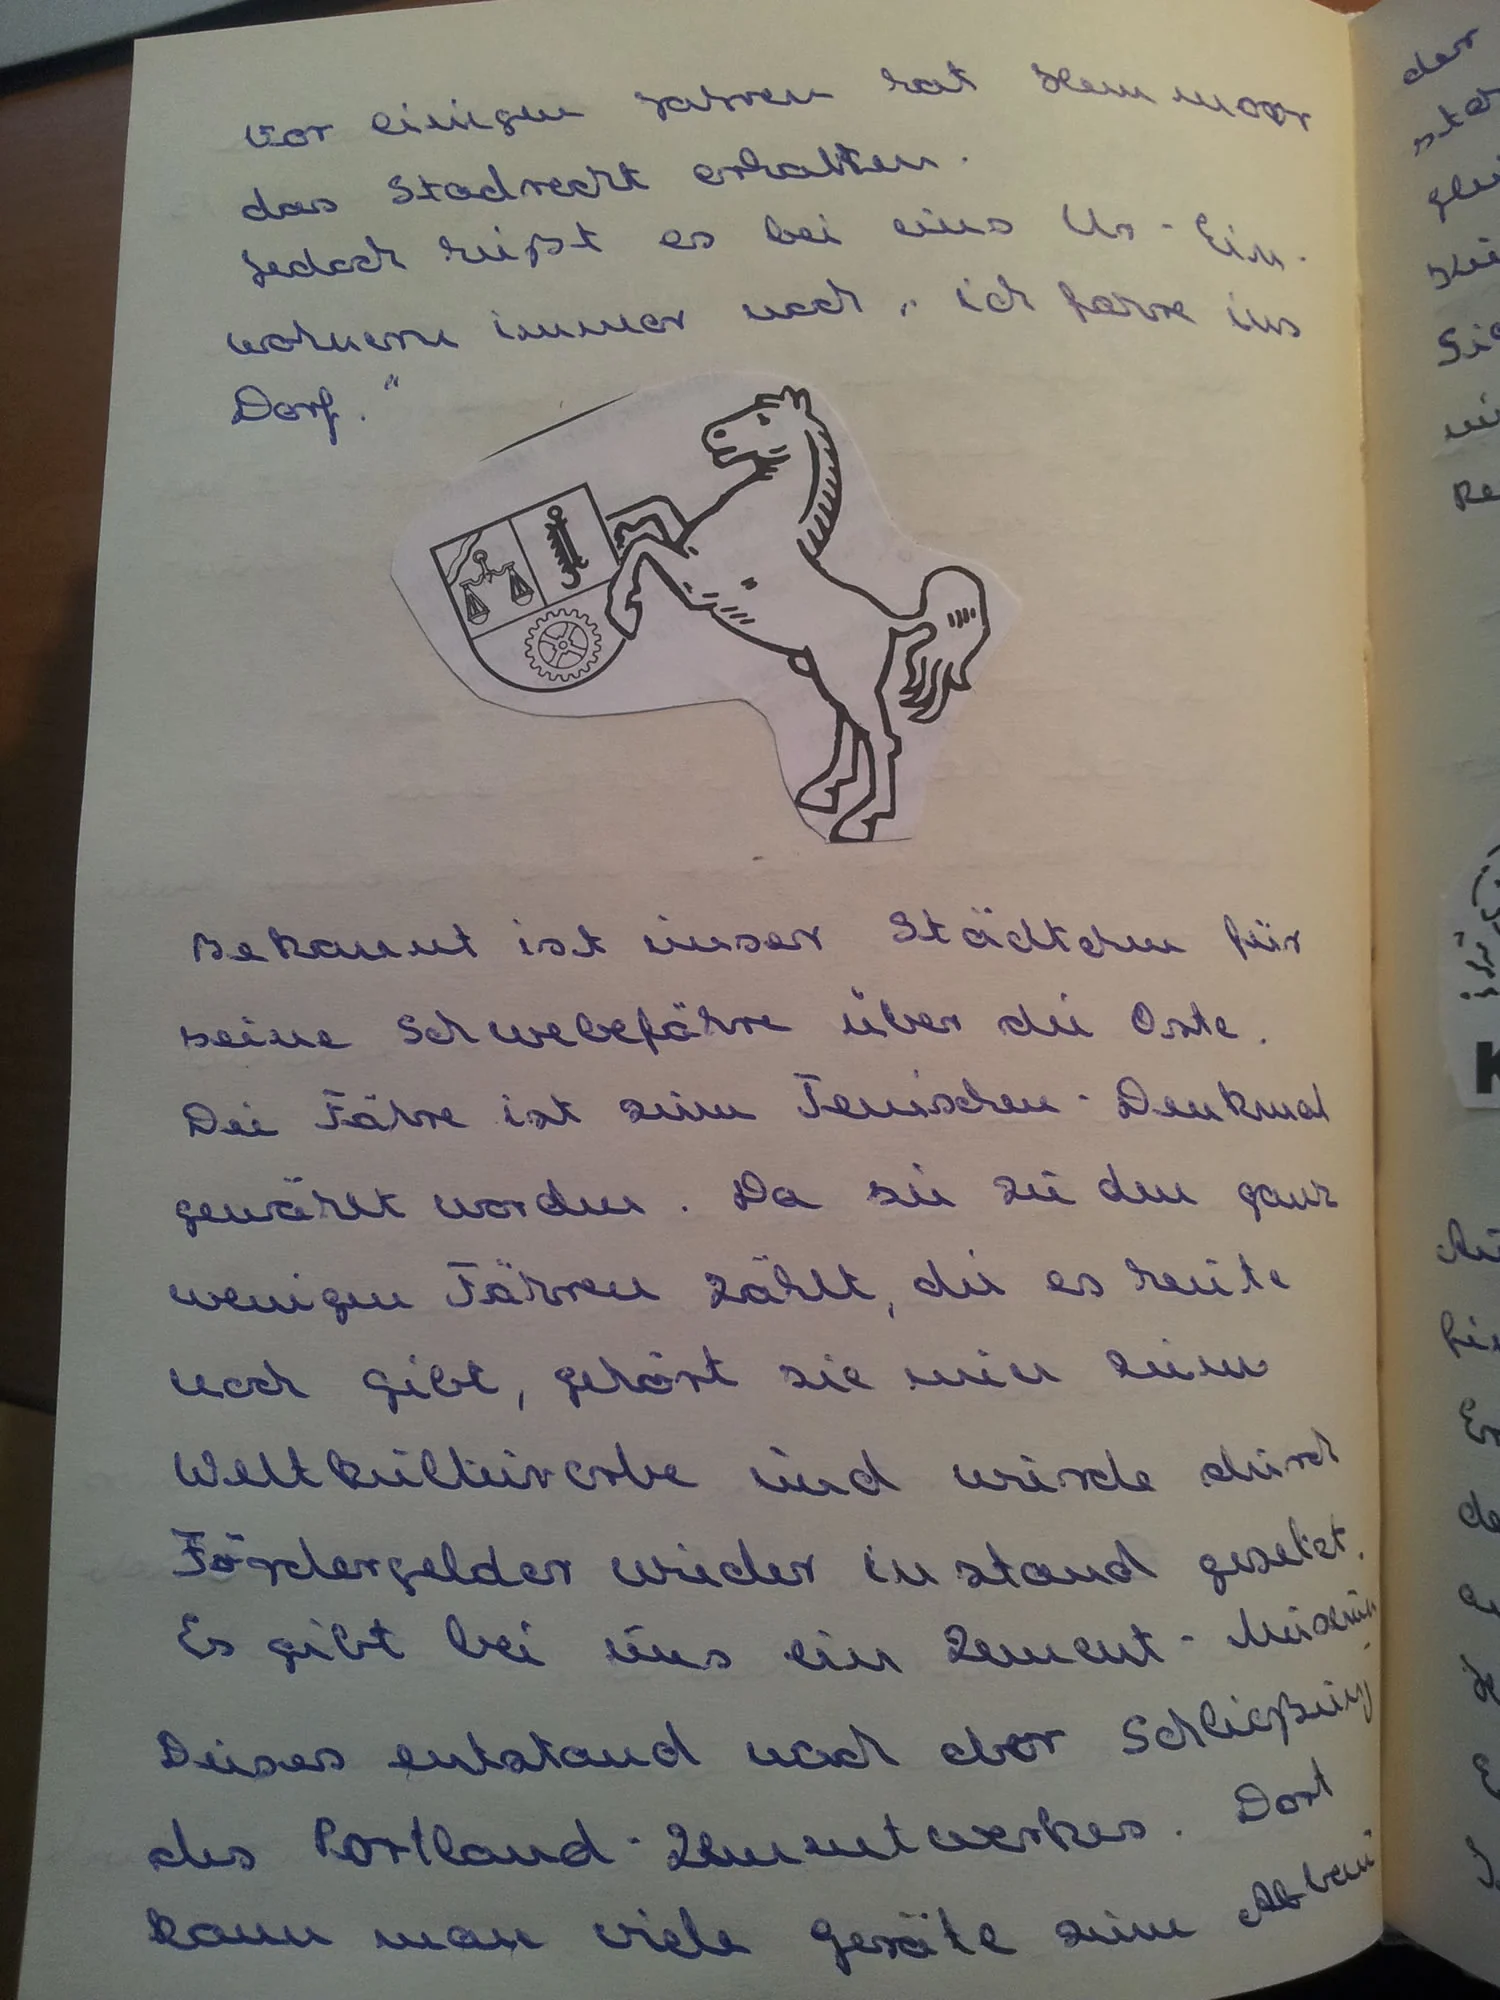 Vor einigen Jahren hat Hemmoor
das Stadrecht erhalten.
Jedoch heißt es bei uns Ur-Ein-
wohnern immer noch, „ich fahre ins
Dorf."
Bekannt ist unser Städtchen für
seine Schwebefähre über die Oste.
Die Fähre ist zum Tenischen-Denkmal
gewählt worden. Da sie zu den ganz
wenigen Fähren zählt, die es heute
noch gibt, gehört sie nun zum
Weltkulturerbe und wurde durch
Fördergelder wieder in stand gesetzt.
Es gibt bei uns ein Zement-
Dieses entstand nach der Schließung
des Portland-Zementwerkes. Dort
kann man viele Geräte zum Abbau
der
K